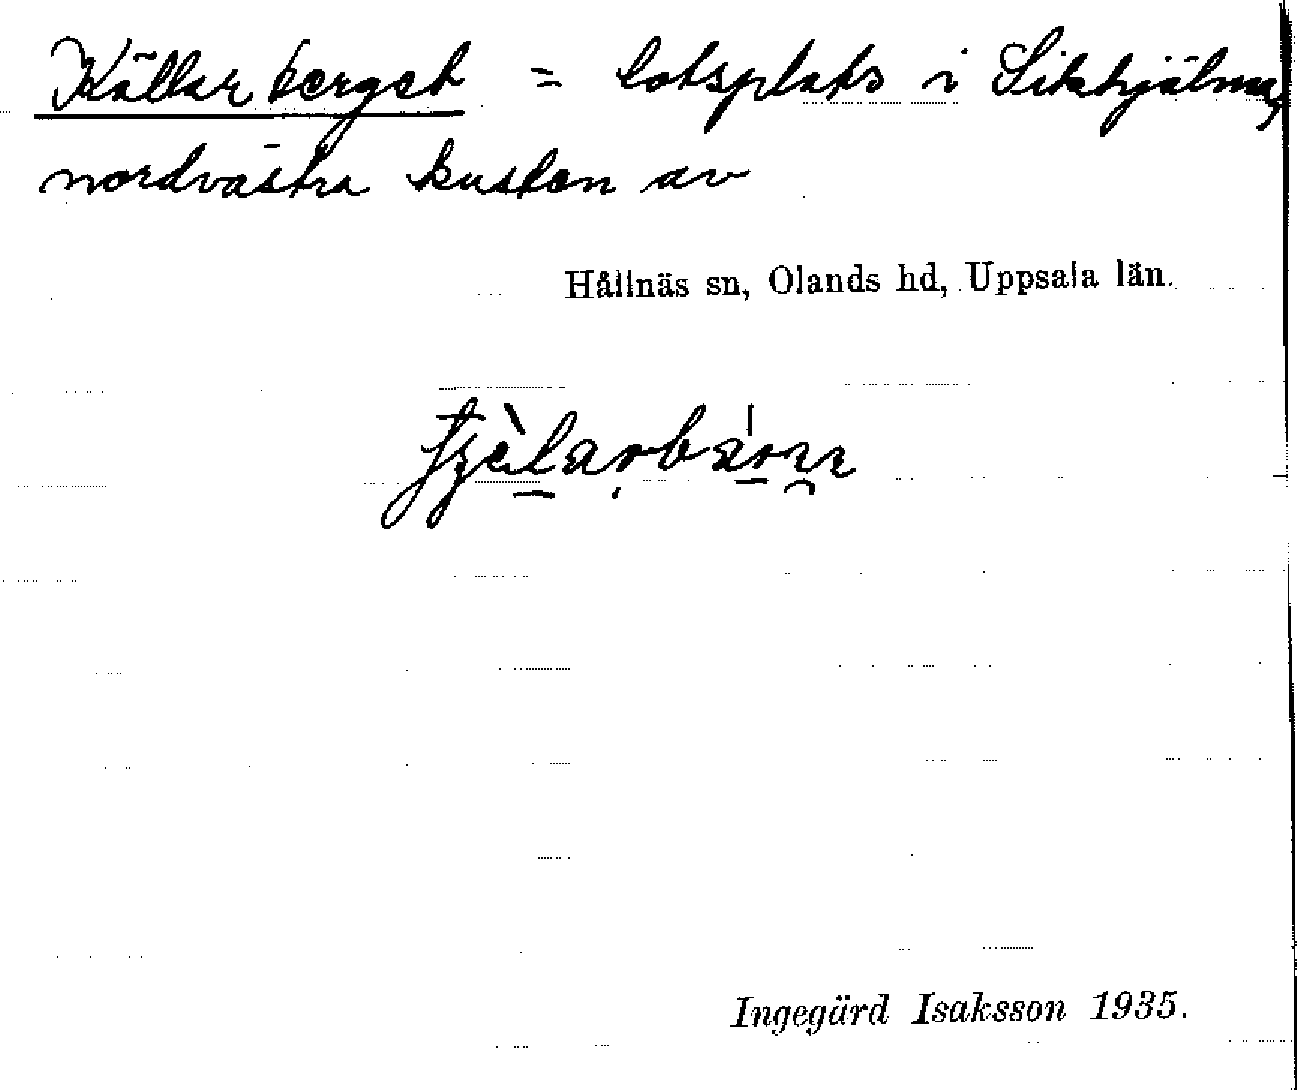 Källarberget = lotsplats i Sikhjälma,
nordvästra kusten av
Hållnäs sn, Olands hd, Uppsala län.
Ingegärd Isaksson 1935.